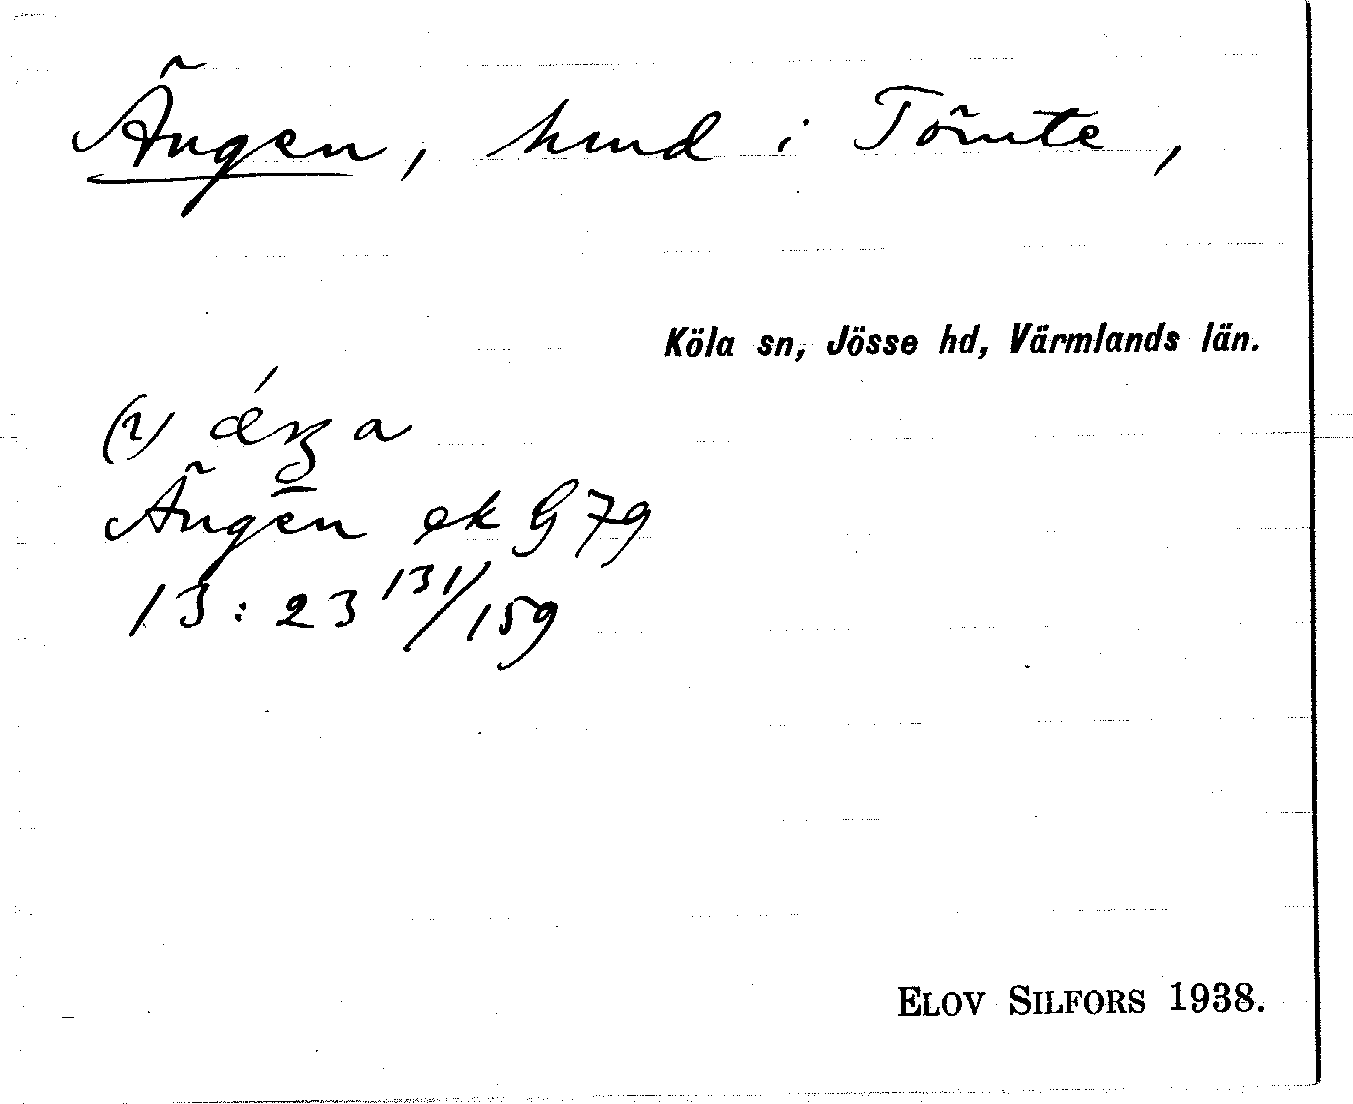 Ängen, hmd i Tömte,
Köla sn, Jösse hd, Värmlands län.
(2) ǽŋa
Ängen ek G 79
13:23 131/159
ELOV SILFORS 1938.